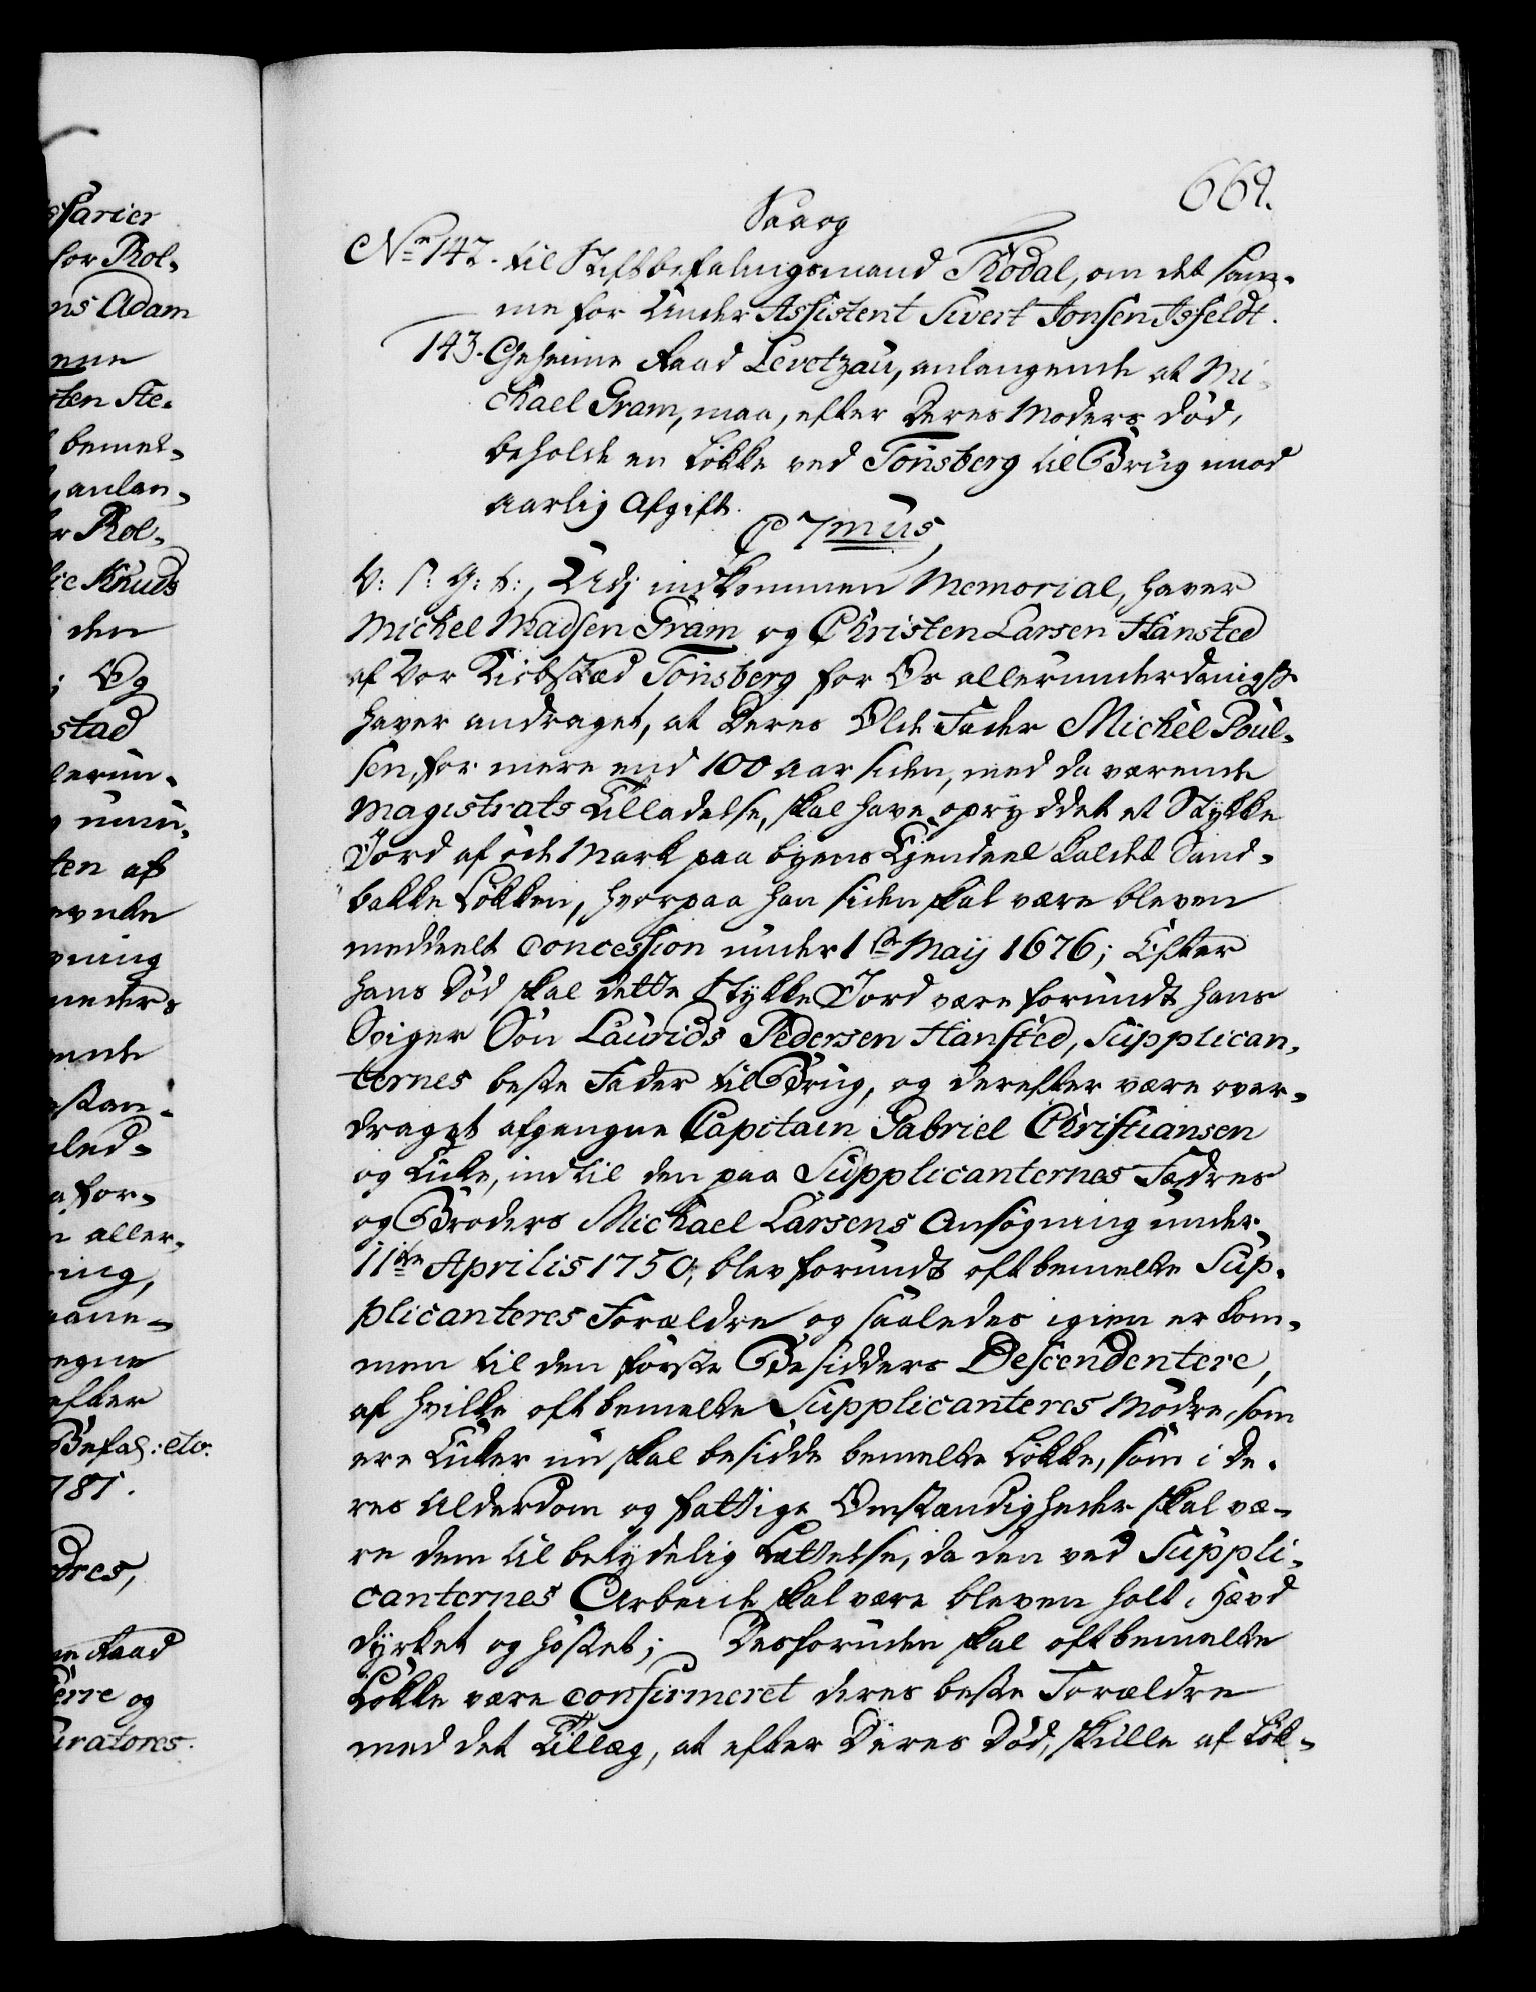 669.
Saa og
No 142. til Stiftbefalingsmand Thodal, om det sam-
me for Under Assistent Sivert Jonsen Isfeldt.
143. Geheime Raad Levetzau, anlangende at Mi-
chael Gram, maa, efter Deres Moders Død,
beholde en Løkke ved Tönsberg til Brug imod
aarlig Afgift.
C 7mus,
V: S: G: t:, Udj indkommen Memorial, haver
Michel Madsen Gram og Christen Larsen Hansted
af Vor Kiøbstæd Tönsberg for Os allerunderdanigst
haver andraget, at Deres Olde Fader Michel Poul-
sen, for mere end 100 Aar siden, med da værende
Magistrats Tilladelse, skal have opryddet et Stykke
Jord af øde Mark paa byens Ejendeel kaldet Sand-
bakke Løkken, hvorpaa han siden skal være bleven
meddeelt Concession under 1ste Maij 1676; Efter
hans Død skal dette Stykke Jord være forundt hans
Sviger Søn Laurids Pedersen Hansted, Supplican-
ternes beste Fader til Brug, og derefter være over-
draget afgangne Capitain Gabriel Christiansen
og Enke, indtil den paa Supplicanternes Fadres
og Broders Michael Larsens Ansøgning under
11te Aprilis 1750, blev forundt oftbemelte Sup-
plicanteres Forældre og saaledes igien er kom-
men til den første Besidders Descendentere,
af hvilke oftbemelte Supplicanteres Mødre, som
ere Enker nu skal besidde bemelte Løkke, som i De-
res Alderdom og fattige Omstændigheder skal væ-
re dem til betydelig Lettelse, da den ved Suppli-
canternes Arbeide skal være bleven holt i Hævd
dyrket og høstet; Desforuden skal oftbemelte
Løkke være confirmeret deres beste Forældre
med det Tillæg, at efter Deres Død, skulle af Løk-